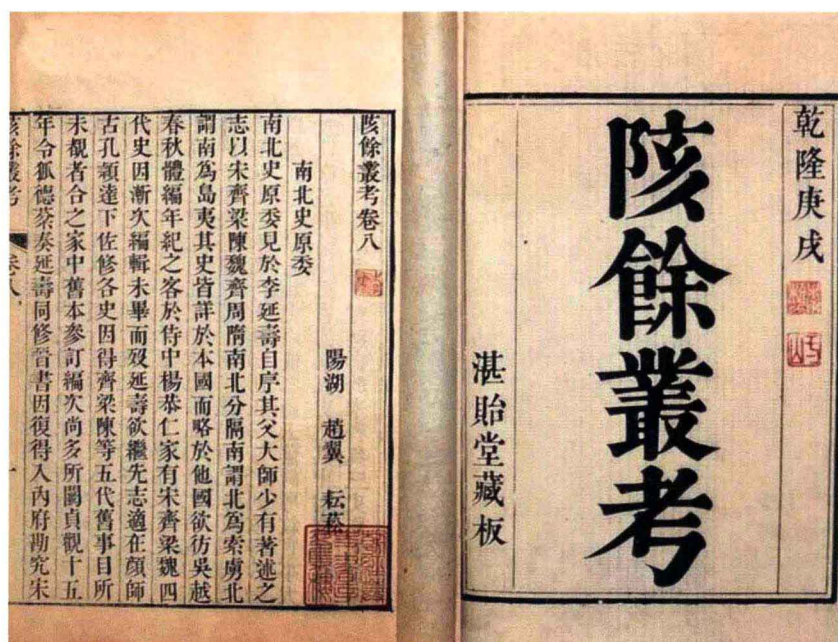 乾隆庚戌
陔餘叢考
湛貽堂藏板
陔餘叢考卷八
陽湖 趙翼 耘菘
南北史原委
南北史原委見於李延壽自序其父大師少有著述之
志以宋齊梁陳魏齊周隋南北分隔南謂北為索虜北
謂南為島夷其史皆詳於本國而略於他國欲彷吳越
春秋體編年紀之客於侍中楊恭仁家有宋齊梁魏四
代史因漸次編輯未畢而歿延壽欲繼先志適在顏師
古孔穎達下佐修各史因得齊梁陳等五代舊事目所
未覩者合之家中舊本參訂編次尚多所闕貞觀十五
年令狐德棻奏延壽同修晉書因復得入內府勘究宋
陔餘叢考
卷八
一